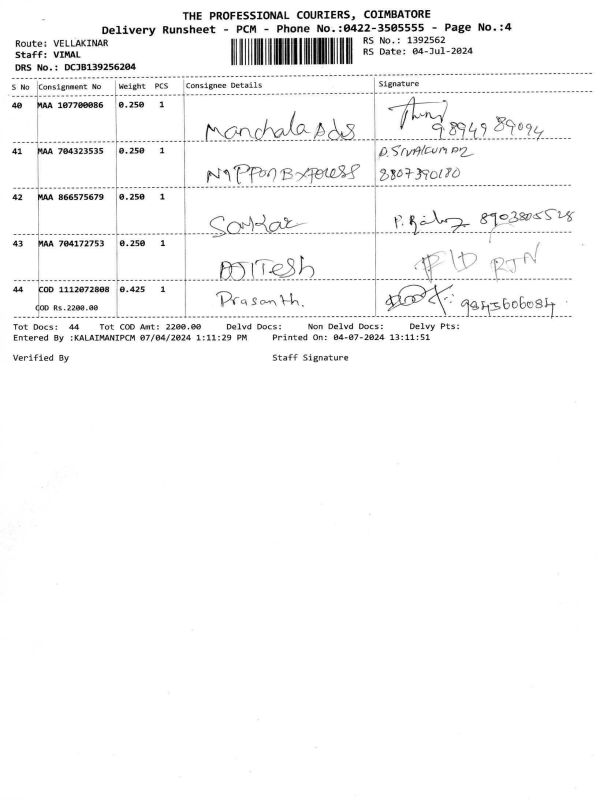 THE PROFESSIONAL COURIERS, COIMBATORE
Delivery Runsheet - PCM - Phone No.:0422-3505555 - Page No.:4
Route: VELLAKINAR RS No.: 1392562
Staff: VIMAL RS Date: 04-Jul-2024
DRS No.: DCJB139256204
S No Consignment No Weight PCS Consignee Details Signature
40 MAA 107700086 0.250 1
Manchala Ads 9894989094
41 MAA 704323535 0.250 1
Nippon Express 8807390180
42 MAA 866575679 0.250 1
Sankar 8903805528
43 MAA 704172753 0.250 1
RTN
44 COD 1112072808 0.425 1 Prasanth. 9843606084
COD Rs.2200.00
Tot Docs: 44 Tot COD Amt: 2200.00 Delvd Docs: Non Delvd Docs: Delvy Pts:
Entered By :KALAIMANIPCM 07/04/2024 1:11:29 PM Printed On: 04-07-2024 13:11:51
Verified By Staff Signature